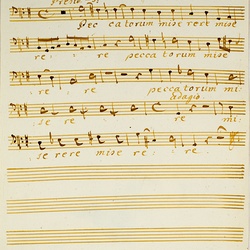 Pec catorum mise rere mise
re : re peccatorum mise
re : : re peccatorum mi:
adagio
se re : : re mi:
se rere mise re : re :